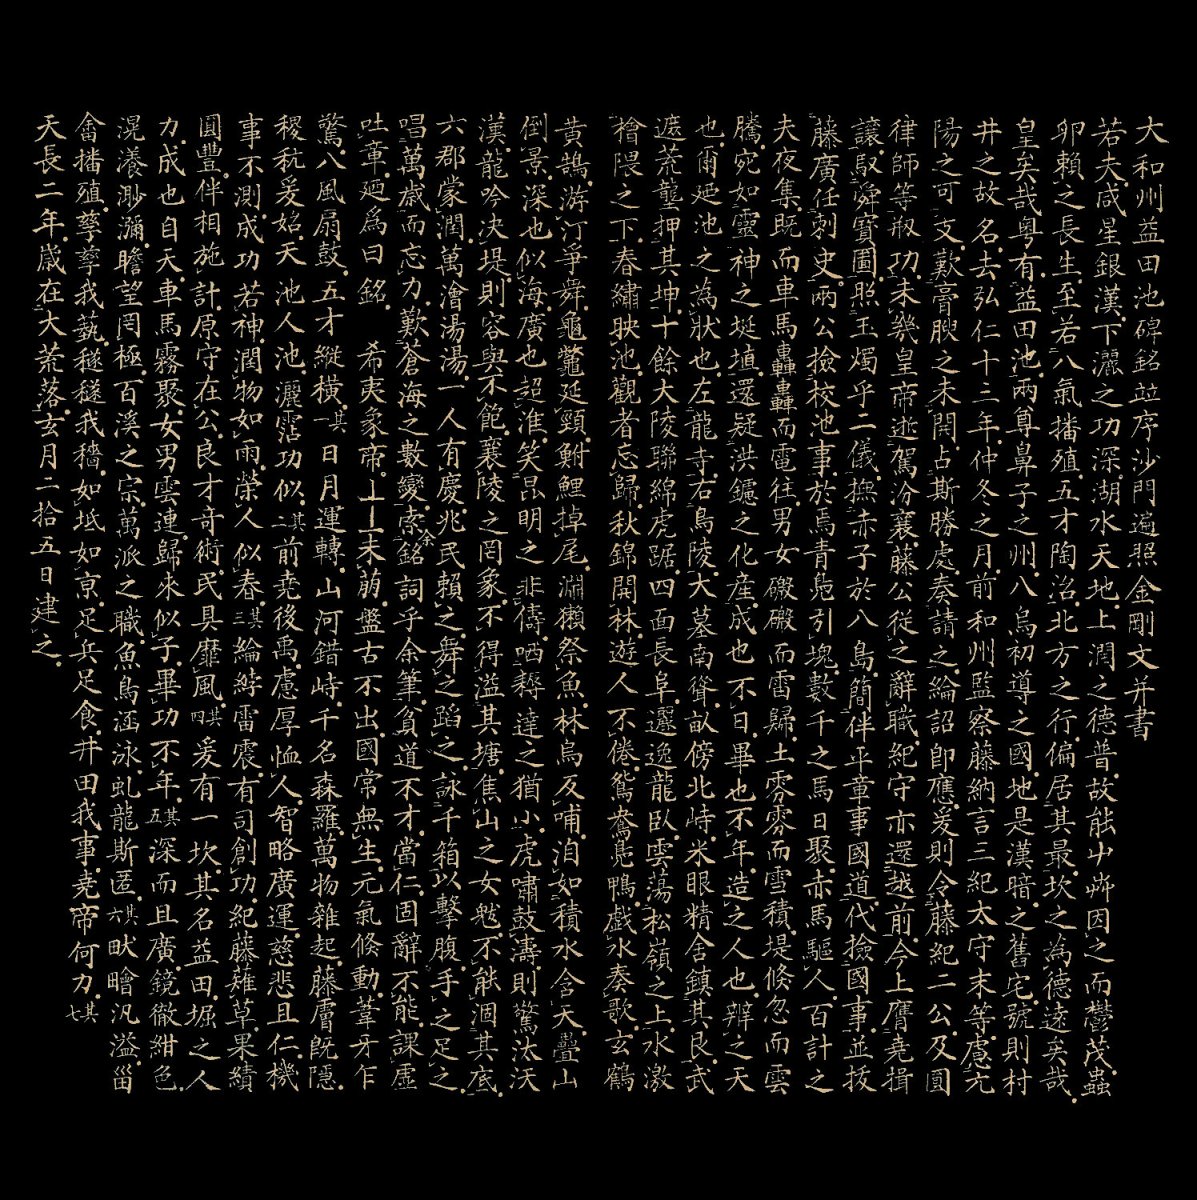 大和州益田池碑銘並序沙門遍照金剛文并書
若夫咸星銀漢下灑之功深湖水天地上潤之德普故能屮卉因之而鬱茂蟲
卵賴之長生至若八氣播殖五才陶冶北方之行偏居其最坎之為德遠矣哉
皇矣哉粤有益田池兩尊鼻子之州八烏初導之國地是漢暗之舊宅號則村
井之故名去弘仁十三年仲冬之月前和州監察藤納言三紀太守末等慮亢
陽之可支歎膏腴之未開占斯勝處奏請之綸詔即應爰則令藤紀二公及圓
律師等剏功未幾皇帝遜駕汾襄藤公從之辭職紀守亦還越前今上膺堯揖
讓馭舜寶圖照玉燭乎二儀撫赤子於八島簡伴平章事國道代撿國事並拔
藤廣任刺史兩公撿挍池事於焉青鳧引塊數千之馬日聚赤馬驅人百計之
夫夜集既而車馬轟轟而電往男女磤磤而雷歸土雰雰而雪積堤倏忽而雲
騰宛如靈神之埏埴還疑洪鑪之化産成也不日畢也不年造之人也辨之天
也爾廼池之為狀也左龍寺右鳥陵大墓南聳畝傍北峙米眼精舍鎮其艮武
遮荒壟押其坤十餘大陵聯綿虎踞四面長阜邐迤龍臥雲蕩松嶺之上水激
檜隈之下春繡映池觀者忘歸秋錦開林遊人不倦鴛鴦鳧鴨戲水奏歌玄鶴
黃鵠游汀爭舞龜鼈延頸鮒鯉掉尾淵獺祭魚林烏反哺洎如積水含天疊山
倒景深也似海廣也超淮笑昆明之非儔哂耨達之猶小虎嘯鼓濤則驚汰沃
漢龍吟決堤則容與不飽襄陵之罔象不得溢其塘焦山之女魃不能涸其底
六郡蒙潤萬澮湯湯一人有慶兆民賴之舞之蹈之詠千箱以擊腹手之足之
唱萬歲而忘力歎蒼海之數變索余銘詞乎余筆貧道不才當仁固辭不能課虛
吐章廼為曰銘 希夷象帝丄丨未萠盤古不出國常無生元氣倏動葦牙乍
驚八風扇鼓五才縱橫其一日月運轉山河錯峙千名森羅萬物雜起藤膚既隱
稷秔爰始天池人池灑霑功似其二前堯後禹慮厚恤人智略廣運慈悲且仁機
事不測成功若神潤物如雨榮人似春其三綸綍雷震有司創功紀藤薙草果績
圓豐伴相施計原守在公良才奇術民具靡風其四爰有一坎其名益田堀之人
力成也自天車馬霧聚女男雲連歸來似子畢功不年其五深而且廣鏡徹紺色
滉瀁渺瀰瞻望罔極百溪之宗萬派之職魚鳥涵泳虬龍斯匿其六畎澮汎溢甾
畬播殖孳孳我蓺穟穟我穡如坻如京足兵足食井田我事堯帝何力其七
天長二年歲在大荒落玄月二拾五日建之